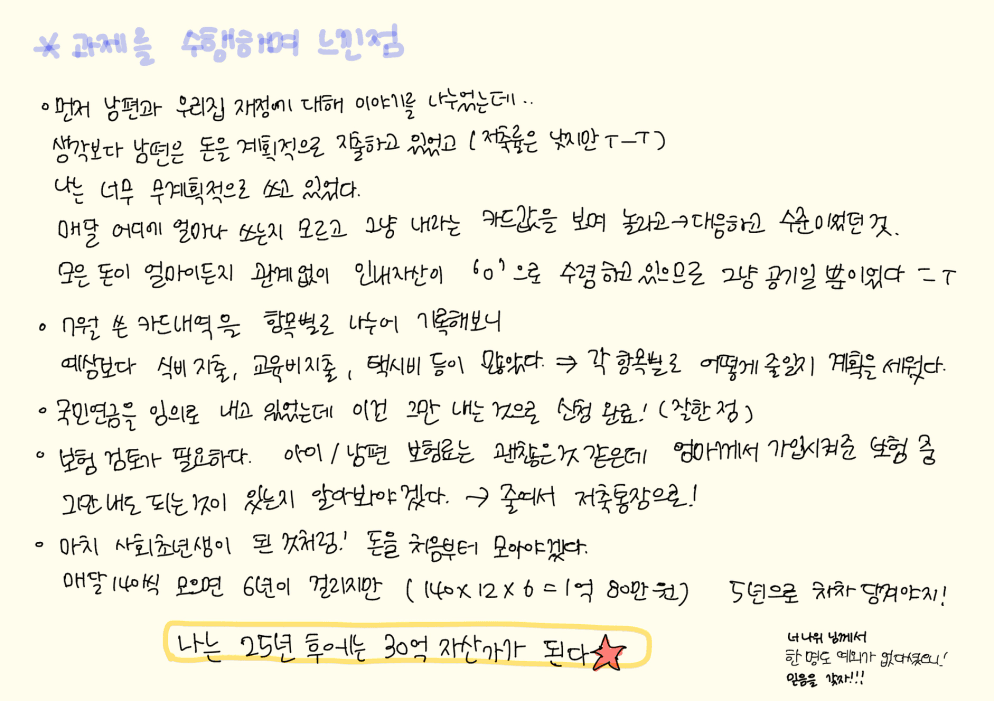 * 과제를 수행하며 느낀점
• 먼저 남편과 우리집 재정에 대해 이야기를 나누었는데..
생각보다 남편은 돈을 계획적으로 지출하고 있었고 (저축률은 낮지만 ㅜㅡㅜ)
나는 너무 무계획적으로 쓰고 있었다.
매달 어디에 얼마나 쓰는지 모르고 그냥 내라는 카드값을 보며 놀라고 → 대응하고 수준이었던 것.
모은 돈이 얼마이든지 관계없이 인내자산이 '0'으로 수렴하고 있으므로 그냥 공기일 뿐이었다 ㅡㅜ
• 7월 쓴 카드내역을 항목별로 나누어 기록해보니
예상보다 식비 지출, 교육비지출, 택시비 등이 많았다. ⇒ 각 항목별로 어떻게 줄일지 계획을 세웠다.
• 국민연금을 임의로 내고 있었는데 이건 그만 내는 것으로 신청 완료! (잘한 점)
• 보험 검토가 필요하다. 아이/남편 보험료는 괜찮은것 같은데 엄마께서 가입시켜준 보험 중
그만 내도 되는 것이 있는지 알아봐야겠다. → 줄여서 저축통장으로!
• 마치 사회초년생이 된 것처럼! 돈을 처음부터 모아야겠다.
매달 140씩 모으면 6년이 걸리지만 (140×12×6=1억 80만원) 5년으로 차차 당겨야지!
나는 25년 후에는 30억 자산가가 된다
너나위 님께서
한 명도 예외가 없다셨으니!
믿음을 갖자!!!